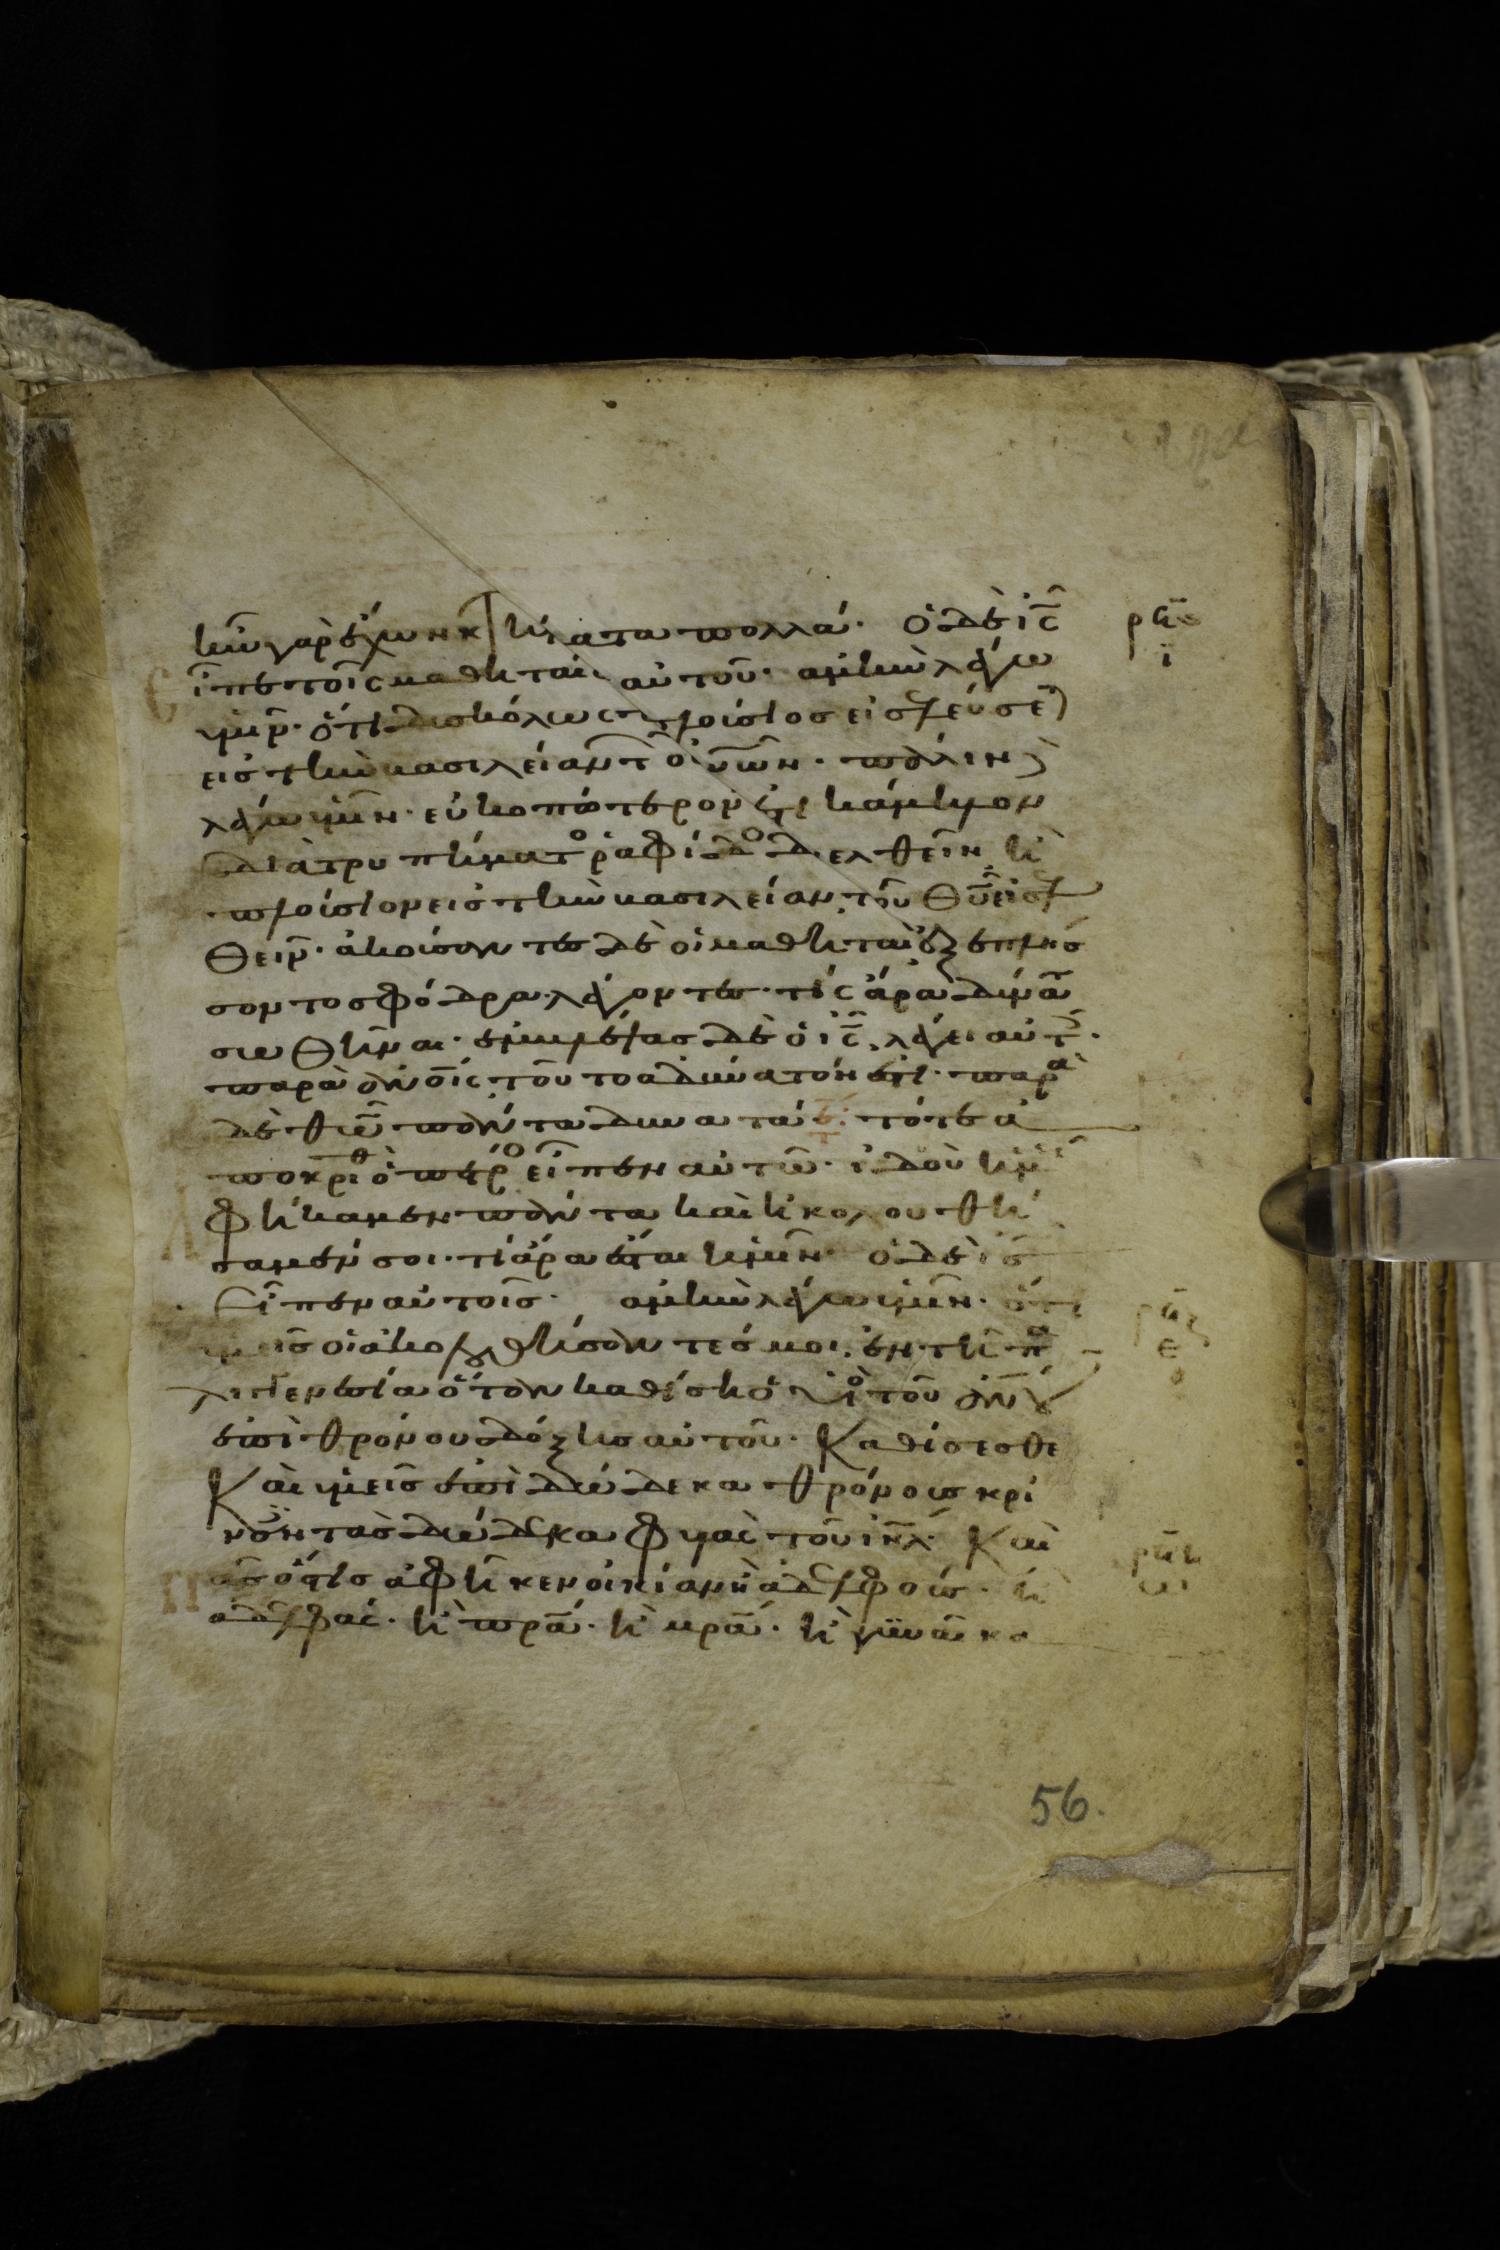 ἦν γὰρ ἔχων κτήματα πολλά· ὁ δὲ ις̅
εἶπε τοῖς μαθηταῖς αὐτοῦ· ἀμὴν λέγω
ὑμῖν· ὅτι δυσκόλως πλούσιος εἰσελεύσετ
εἰς τὴν βασιλείαν τ οὐνῶν· πάλιν
λέγω ὑμῖν· εὐκοπώτερον ἐστι κάμηλον
διὰ τρυπήματο ῥαφίδο διελθεῖν ἢ
πλούσιον εἰς τὴν βασιλείαν τοῦ θυ̅ εἰσελ
θεῖν· ἀκούσαντες δὲ οἱ μαθηταὶ ἐξεπλήσ
σοντο σφόδρα λέγοντες· τίς ἄρα δύνατ
σωθῆναι· ἐμβλέψας δὲ ὁ ις̅ λέγει αὐτ·
παρὰ ἀνοῖς τοῦτο ἀδύνατόν ἐστι· παρὰ
δὲ θω̅ πάντα δυνατά· τότε ἀ
ποκριθ ὁ πέτρο εἶπεν αὐτῶ· ἰδοὺ ἡμεῖ
φήκαμεν πάντα καὶ ἠκολουθή
σαμέν σοι· τί ἄρα ἔσται ἡμῖν· ὁ δὲ ις
εἶπεν αὐτοῖς· ἀμὴν λέγω ὑμῖν· ὅτι
ὑμεῖς οἱ ἀκολουθήσαντές μοι· ἐν τῆ πα
λιγγενεσία ὅταν καθίση ὁ υἱὸ τοῦ ἀνου
ἐπὶ θρόνου δόξης αὐτοῦ· Καθίσεσθε
Καὶ ὑμεῖς ἐπὶ δώδεκα θρόνους κρί
νοντας δώδεκα φυλὰς τοῦ ιηλ· Καὶ
πᾶς ὅστις ἀφῆκεν οἰκίαν ἢ ἀδελφούς· ἢ
ἀδελφάς· ἢ πρα· ἢ μρα· ἢ γυναῖκα
56.